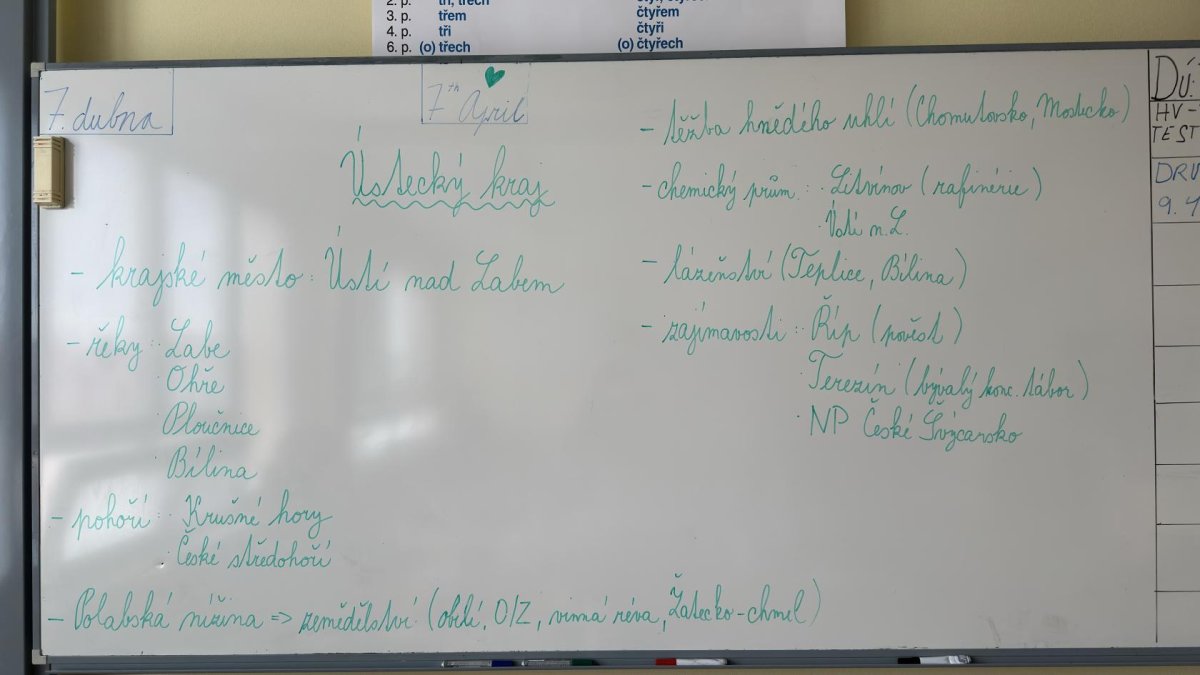 2. p. tří, třech
3. p. třem čtyřem
4. p. tři čtyři
6. p. (o) třech (o) čtyřech
7. dubna
7th April
Ústecký kraj
- krajské město: Ústí nad Labem
- řeky: Labe
Ohře
Ploučnice
Bílina
- pohoří: Krušné hory
České středohoří
- Polabská nížina => zemědělství (obilí, O/Z, vinná réva, Žatecko-chmel)
- těžba hnědého uhlí (Chomutovsko, Mostecko)
- chemický prům.: Litvínov (rafinérie)
Ústí n. L.
- lázeňství (Teplice, Bílina)
- zajímavosti: Říp (pověst)
Terezín (bývalý konc. tábor)
NP České Švýcarsko
DÚ:
HV-
TEST
DRU